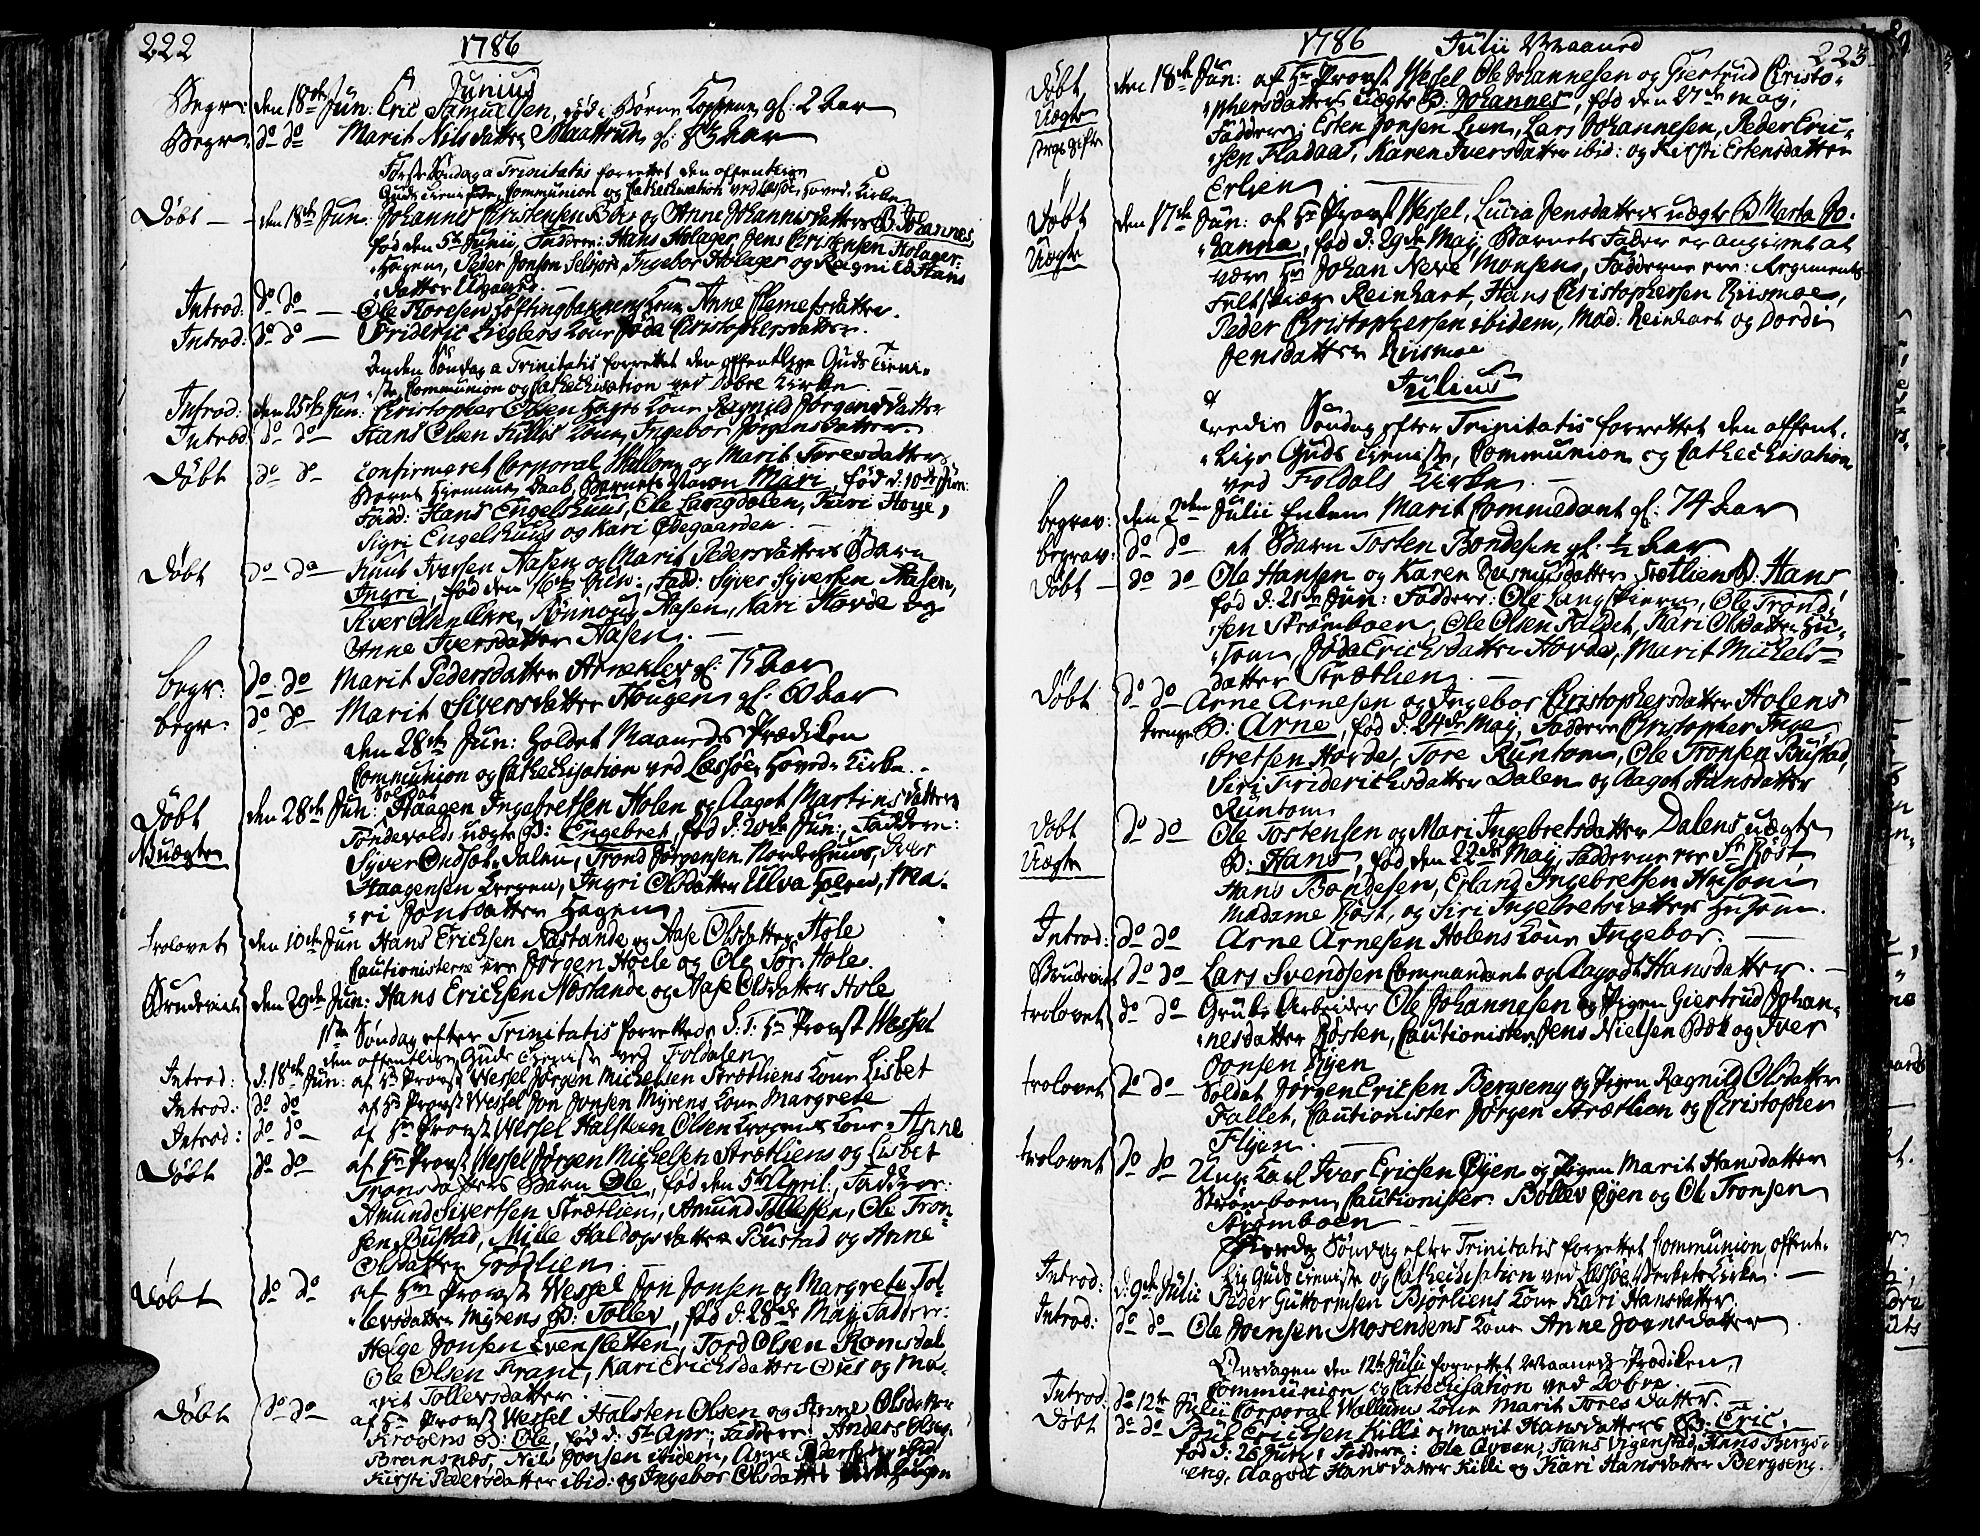 222
1786
Junius
Begr: den 18de Jun: Eric Samuelsen, død i Børne Kopperne gl: 2 Aar
Begr: do do Marit Nilsdatter Maattrun gl: Aar
Første Søndag a Trinitatis forrettet den offentlige
Guds tieniste, Communion og Cathechisation ved Læssøe Hoved-Kirke
Døbt — den 18de Jun: Johannes Christensen og Anne Johannisdatters B. Johannes,
fød den 5te Junii, Faddere: Hans Holager, Jens Christensen Holager,
Hagen, Peder Jonsen Selsjord, Ingebor Holager og Ragnild Hans
datter
Introd: do do — Ole Toresen Kone Anne Clemetsdatter.
Introd: do do — Frideric Zieglers Kone Joda Christophersdatter.
Anden Søndag a Trinitatis forrettet den offentlige Guds tieni-
ste Communion og Catechisation ved Dovre Kirke
Introd: den 25de Jun: Christopher Olsen Hages Kone Ragnild Jørgensdatter
Introd: do do — Hans Olsen Killes Kone, Ingebor Jørgensdatter
Døbt do do — Confirmeret Corporal Wallom og Marit Toresdatters
Barns hiemme Daab, Barnets Navn Mari, fød d: 10de Jun:
Fadd: Hans Engelshuus, Ole Langdalen, Turi Hoye,
Sigri Engelshuus og Kari Ødegaarden.
Døbt do do — Knut Ivarsen Aasen og Marit Pedersdatters Barn
Ingri, fød den 16de hujus, Fadd: Syver Syversen Aasen,
Siver Rønnoug Aasen, Kari Horde og
Anne Iversdatter Aasen. —
begr: do do Marit Pedersdatter gl: 75 Aar
begr: do do — Marit Siversdatter Hougen gl: 60 Aar
den 28de Jun: holdet Maaneds Prædiken
Communion og Catechisation ved Læssøe Hoved-Kirke.
Døbt den 28de Jun: Soldat Haagen Ingebretsen Holen og Aagot Martinsdatter
NB uægte Tondevolds uægte B: Engebret, fød d: 20de Jun:, Faddere:
Syver Dalen, Trond Jørgensen Nordre Huus, Iver
Haagensen Hagen, Ingri Olsdatter Ulva Holen, Ma-
ri Jonsdatter Hagen
trolovet den 10de Jun Hans Ericksen Næstande og Aase Olsdatter Hole
Cautionisterne ere Jørgen Hoele og Ole Tor: Hole.
Brudeviet den 29de Jun: Hans Ericksen Næstande og Aase Olsdatter Hole
1ste Søndag efter Trinitatis forrettede S: T: Hr Provst Wessel
den offentlige Guds tieniste ved Foldalen
Introd: d: 18de Jun: af Hr Provst Wessel Jørgen Michelsen Strætliens Kone Lisbet
Introd: do do af Hr Provst Wessel Jon Jonsen Myrens Kone Margrete
Introd: do do — af Hr Provst Wessel Halsten Olsen Krogens Kone Anne
Døbt do do — af Hr Provst Wessel Jørgen Michelsen Strætliens og Lisbet
Tronsdatters Barn Ole, fød den 5te April, Faddere:
Amund Sivertsen Strætlien, Amund Tollefsen, Ole Tron-
sen Bustad, Mille Haldogsdatter Bustad og Anne
Olsdatter Grødlien
Døbt do do af Hr Provst Wessel Jon Jonsen og Margrete Tol-
lersdatter Myrens B: Tollev, fød d: 28de Maij Faddere:
Helge Jonsen Evensletten, Tord Olsen Romsdal,
Ole Olsen Franc, Kari Ericksdatter Øus og Ma-
rit Tollersdatter.
Døbt do do — af Hr Provst Wessel Halsten Olsen og Anne Olsdatter
Krogens B: Ole, fød d: 5te Apr: Faddere: Anders
Bransnæs, Nils Jonsen ibidem, Arne Pedersen ibid:
Kirsti Pedersdatter ibid: og Ingebor Olsdatter
1786 Julii Maaned 223
Døbt den 18de Jun: af Hr Provst Wessel Ole Johannesen og Giertrud Christo-
Uægte phersdatters uægte B: Johannes, fød den 27de Maij,
Faddere: Esten Jonsen Lien, Lars Johannesen, Peder Eric-
sen Fladaas, Karen Iversdatter ibid: og Kirsti Estensdatter
Erlien
Døbt den 17de Jun: af Hr Provst Wessel, Lucia Jensdatters uægte B Marta Jo-
Uægte hanna, fød d: 29de Maij, Barnets Fader er angivet at
være Hr Johan Neve Monsen, Fadderne ere: Regiments
Feltskiær Reinhart, Hans Christophersen Riismoe,
Peder Christophersen ibidem, Mad: Reinhart og Dordi
Jensdatter Riismoe
Julius
Tredie Søndag efter Trinitatis forrettet den offent-
lige Guds tieniste, Communion og Cathechisation
ved Foldals Kirke
begrav: den 2den Julii Enken Marit Commedant gl: 74 Aar
begrav: do do et Barn Torsten Bondesen gl: ½ Aar
Døbt — do do Ole Hansen og Karen Rasmusdatter Strætliens B: Hans
fød d: 21de Jun: Faddere: Ole Langskiern, Ole Trond-
sen Strømboen, Ole Olsen Faldet, Kari Olsdatter Hu-
som, Joda Ericksdatter Horde, Marit Michels-
datter Strætlien
Døbt do do Arne Arnesen og Ingebor Christophersdatter Holens
drenge B: Arne, fød d: 24de Maij, Faddere Christopher Inge-
bretsen Horde, Tore Runtom, Ole Tronsen Bustad,
Siri Friderichsdatter Dalen og Aagot Hansdatter
Runtom
Døbt do do Ole Torstensen og Mari Ingebretsdatter Dalens uægte
Uægte B: Hans, fød den 22de Maij, Fadderne ere Sr Røst
Hans Bondesen, Erland Ingebretsen Husom
Madame Røst, og Siri Ingebretsdatter Husom.
Introd: do do Arne Arnesen Holens Kone Ingebor. —
Brudeviet do do Lars Svendsen Commandant og Aagodt Hansdatter. —
trolovet do do Grube Arbeider Ole Johannesen og Pigen Giertrud Johan-
nesdatter Røsten, Cautionister Jens Nielsen Bæk og Iver
Jonsen Flyen
trolovet do do Soldat Jørgen Ericksen Bergseng og Pigen Ragnild Olsdatter
Fallet, Cautionister Jørgen Strætlien og Christopher
Flyen.
trolovet do do Ung Karl Ivar Ericksen Øyen og Pigen Marit Hansdatter
Strømboen, Cautionister Bollev Øyen og Ole Tronsen
Strømboen
Fierde Søndag efter Trinitatis forrettet Communion, offent-
lig Guds tieniste og Catechisation ved Læssøe Werkets Kirke. —
Introd: d: 9de Julii Peder Guttormsen Bjørliens Kone Kari Hansdatter
Introd: do do Ole Joensen Mosendens Kone Anne Joensdatter.
Onsdagen den 12te Julii forrettet Maaneds Prædiken,
Communion og Catechisation ved Dovre. —
Introd do 12te Julii Corporal Walloms Kone Marit Toresdatter.
Døbt do do Poul Ericksen Killi og Marit Hansdatters B: Eric,
fød d: 26 Jun: Faddere: Ole Hans Vigenstad, Hans Bergs-
eng, Aagodt Hansdatter Killi og Kari Hansdatter Bergseng.